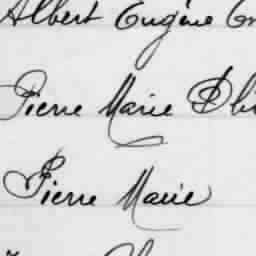 Albert Eugène
Pierre Marie
Pierre Marie